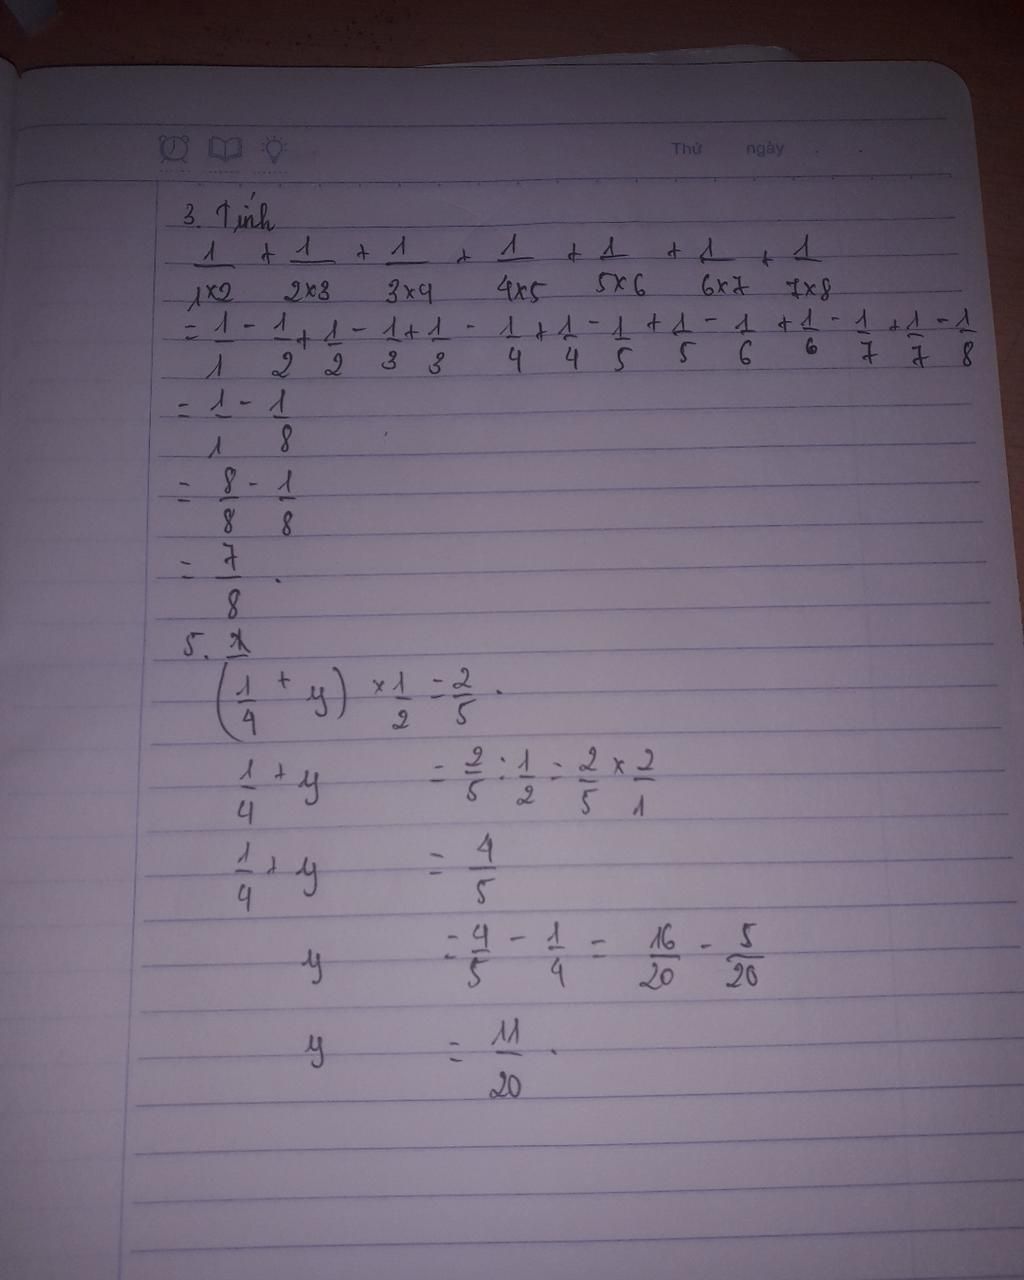 Thứ ngày
3. Tính
1/1×2 + 1/2×3 + 1/3×4 + 1/4×5 + 1/5×6 + 1/6×7 + 1/7×8
= 1/1 - 1/2 + 1/2 - 1/3 + 1/3 - 1/4 + 1/4 - 1/5 + 1/5 - 1/6 + 1/6 - 1/7 + 1/7 - 1/8
= 1/1 - 1/8
= 8/8 - 1/8
= 7/8 .
5.
(1/4 + y) × 1/2 = 2/5 .
1/4 + y = 2/5 : 1/2 = 2/5 × 2/1
1/4 + y = 4/5
y = 4/5 - 1/4 = 16/20 - 5/20
y = 11/20 .